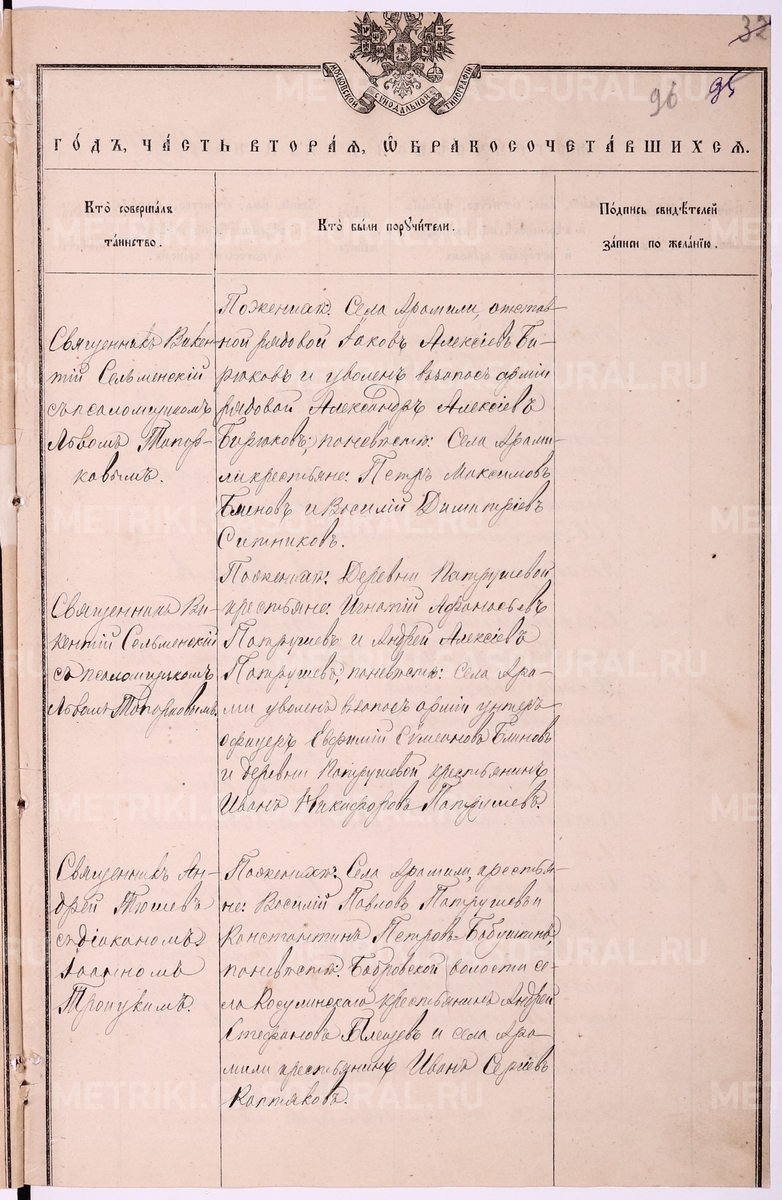 32
96 95
МОСКОВСКОЙ СѴНОДАЛЬНОЙ ТИПОГРАФІИ
ГО́ДЪ, ЧА́СТЬ ВТОРА́Я, Ѡ҆ БРАКОСОЧЕТА́ВШИХСЯ.
Кто̀ соверша́лъ
та́инство.
Кто̀ бы́ли порꙋчи́тели.
По́дпись свидѣ́телей
за́писи по жела́нїю.
Священникъ Викен-
тій Сельменскій
съ псаломщикомъ
Львомъ Топор-
ковымъ.
По женихѣ: Села Арамили, отстав-
ной рядовой Іаковъ Алексіевъ Би-
рюковъ и уволен. въ запасъ арміи
рядовой Александръ Алексіевъ
Бирюковъ; по невѣстѣ: Села Арами-
ли крестьяне: Петръ Максимовъ
Блиновъ и Василій Димитріевъ
Ситниковъ.
Священникъ Ви-
кентій Сельменскій
съ псаломщикомъ
Львомъ Топорковымъ.
По женихѣ: Деревни Патрушевой
крестьяне: Игнатій Афанасьевъ
Патрушевъ и Андрей Алексіевъ
Патрушевъ; по невѣстѣ: села Ара-
ми уволен. въ запасъ арміи унтеръ
офицеръ Евфимій Сѵмеоновъ Блиновъ
и деревни Патрушевой крестьянинъ
Иванъ Никифоровъ Патрушевъ.
Священникъ Ан-
дрей Тюшевъ
съ діакономъ
Іоанномъ
Троицкимъ.
По женихѣ: Села Арамили, крестья-
не: Василій Павловъ Патрушевъ и
Константинъ Петровъ Бабушкинъ,
по невѣстѣ: Бобровской волости се-
ла Косулинскаго крестьянинъ Андрей
Стефановъ Плещевъ и села Ара-
мили крестьянинъ Иванъ Сергіевъ
Коптяковъ.
METRIKI.GASO-URAL.RU